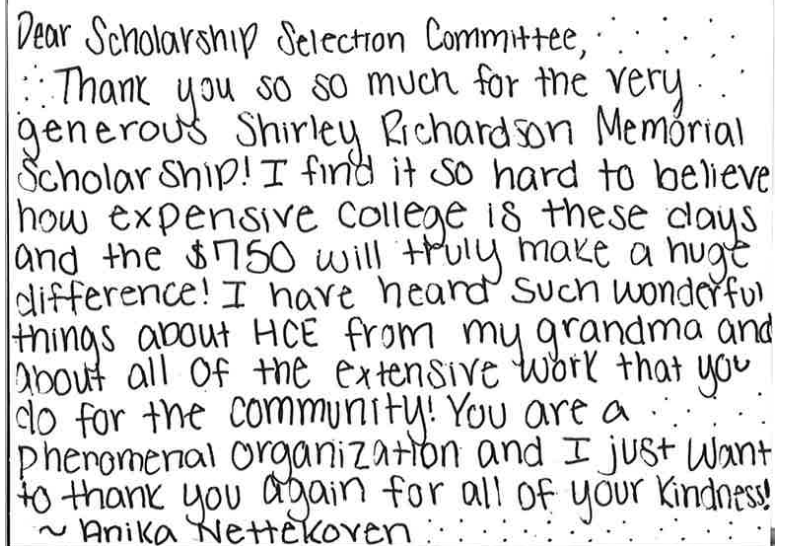 Dear Scholarship Selection Committee,
Thank you so so much for the very
generous Shirley Richardson Memorial
Scholarship! I find it so hard to believe
how expensive college is these days
and the $750 will truly make a huge
difference! I have heard such wonderful
things about HCE from my grandma and
about all of the extensive work that you
do for the community! You are a
phenomenal organization and I just want
to thank you again for all of your kindness!
~ Anika Nettekoven